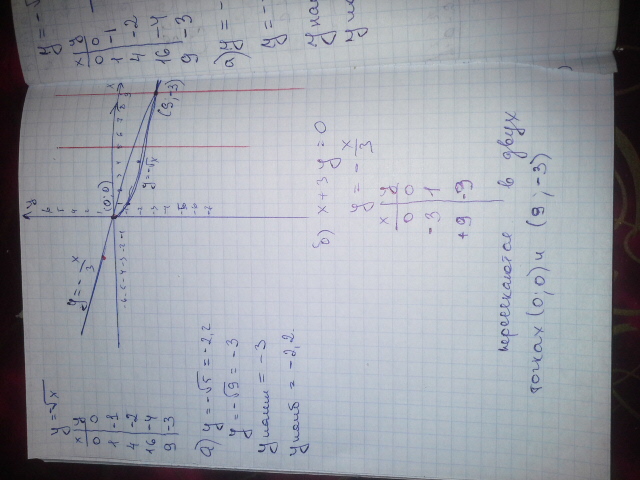 y = √x
x | y
0 | 0
1 | -1
4 | -2
16 | -4
9 | -3
y = -x/3
(0;0)
y = -√x
(9;-3)
y
x
-6 -5 -4 -3 -2 -1
а) y = -√5 = -2,2
y = -√9 = -3
y наим = -3
y наиб = -2,2
б) x + 3y = 0
y = -x/3
x | y
0 | 0
-3 | 1
+9 | -9
пересекаются в двух
точках (0;0) и (9;-3)
x | y
0 | 0
1 | -1
4 | -2
16 | -4
9 | -3
а) y = -
y = -
y наи
y на